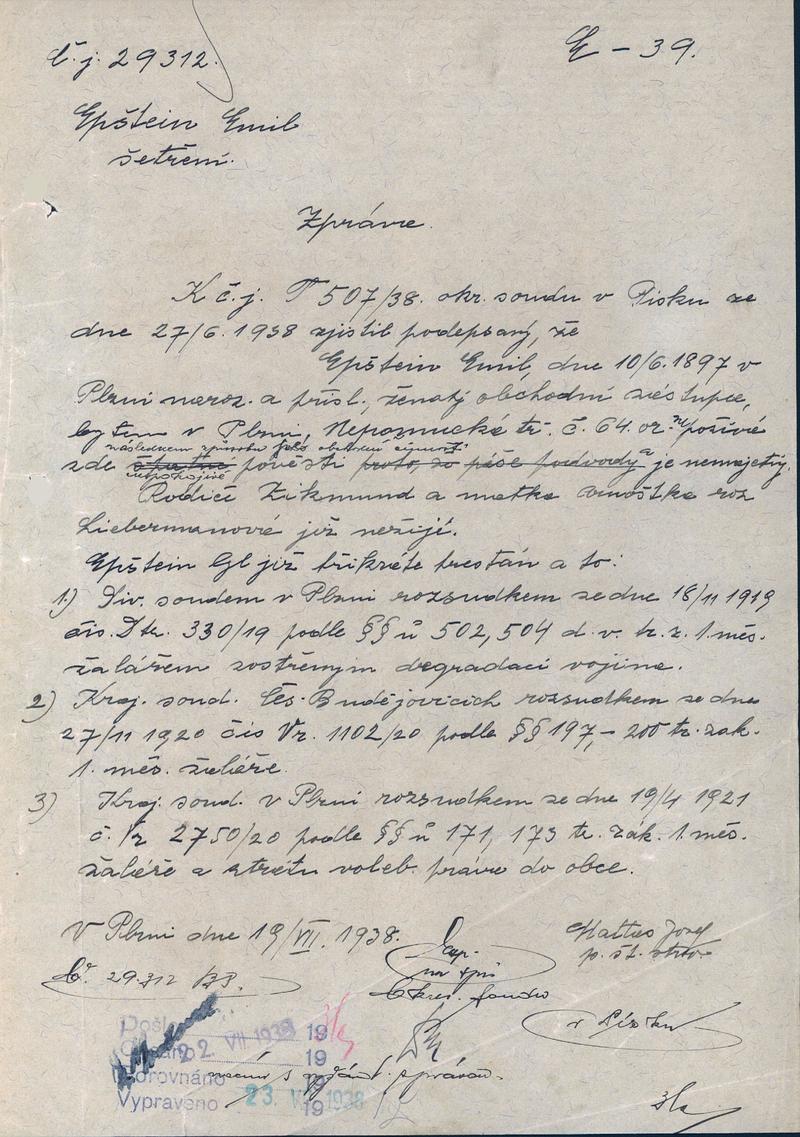 č. j. 29312.
E – 39.
Epštein Emil
šetření.
Zpráva.
K č. j. T 507/38. okr. soudu v Písku ze
dne 27/6. 1938 zjistil podepsaný, že
Epštein Emil, dne 10/6. 1897 v
Plzni naroz. a přísl., ženatý obchodní zástupce,
bytem v Plzni, Nepomucká tř. č. 64. požívá
následkem způsobu jeho obchodní činnosti
zde špatné pověsti proto, že páše podvody a je nemajetný.
Rodiče Zikmund a matka Arnoštka roz
Liebermanová již nežijí.
Epštein byl již třikráte trestán a to:
1) Div. soudem v Plzni rozsudkem ze dne 18/11 1919
čís. Dtr. 330/19 podle §§ ů 502, 504 d. v. tr. z. 1. měs.
žalářem zostřeným degradací vojína.
2) Kraj. soud. Čes. Budějovicích rozsudkem ze dne
27/11 1920 čís Vr. 1102/20 podle §§ 197,– 200 tr. zák.
1. měs. žaláře.
3) Kraj. soud. v Plzni rozsudkem ze dne 19/4 1921
č. Vr 2750/20 podle §§ ů 171, 173 tr. zák. 1. měs.
žaláře a ztrátu voleb. práva do obce.
V Plzni dne 19/VII. 1938.
Mattas Josef
p. st. stráž.
Č. 29.312
Okres. soudu
v Písku
Došlo
22. VII 1938 19
19
Porovnáno 19
s vyžád. zprávou.
Vypraveno 23. V 1938 19